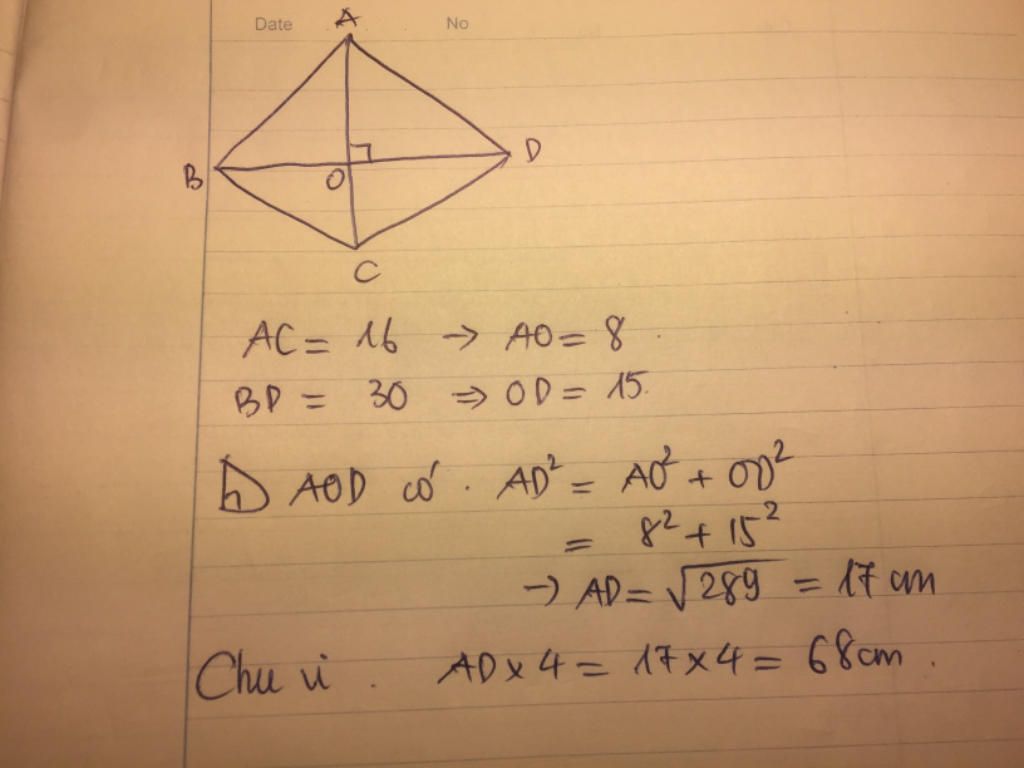 Date No
A
B
D
O
C
AC = 16 → AO = 8
BD = 30 ⇒ OD = 15.
AOD có. AD² = AO² + OD²
= 8² + 15²
→ AD = √289 = 17 cm
Chu vi. AD x 4 = 17 x 4 = 68cm.